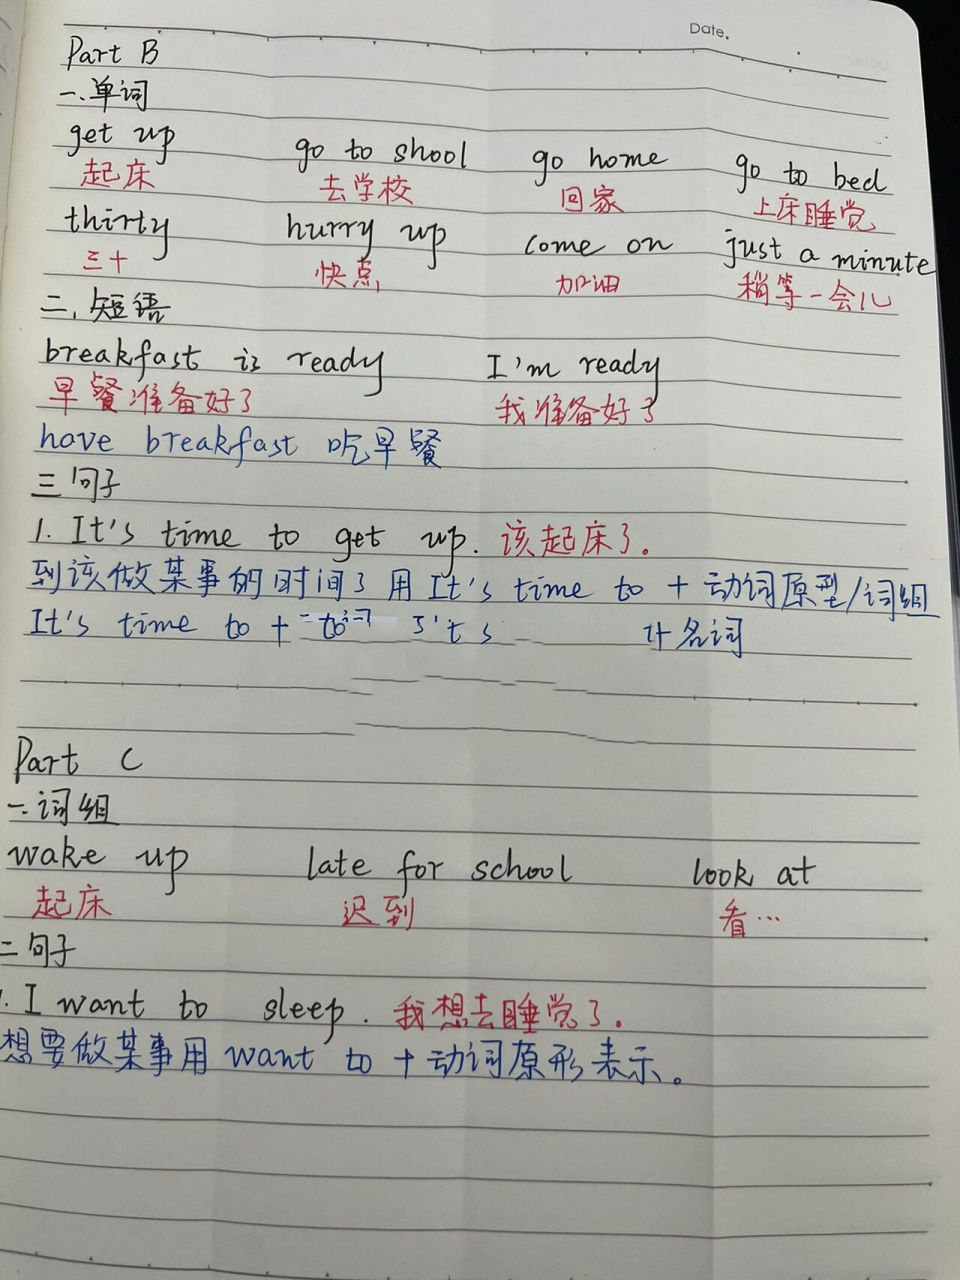 Date.
Part B
一.单词
get up go to shool go home go to bed
起床 去学校 回家 上床睡觉
thirty hurry up come on just a minute
三十 快点 加油 稍等一会儿
二.短语
breakfast is ready I'm ready
早餐准备好了 我准备好了
have breakfast 吃早餐
三句子
1. It's time to get up. 该起床了。
到该做某事的时间了用 It's time to + 动词原型/词组
It's time to + +名词
Part C
一.词组
wake up late for school look at
起床 迟到 看…
二句子
1. I want to sleep. 我想去睡觉了。
想要做某事用 want to + 动词原形表示。